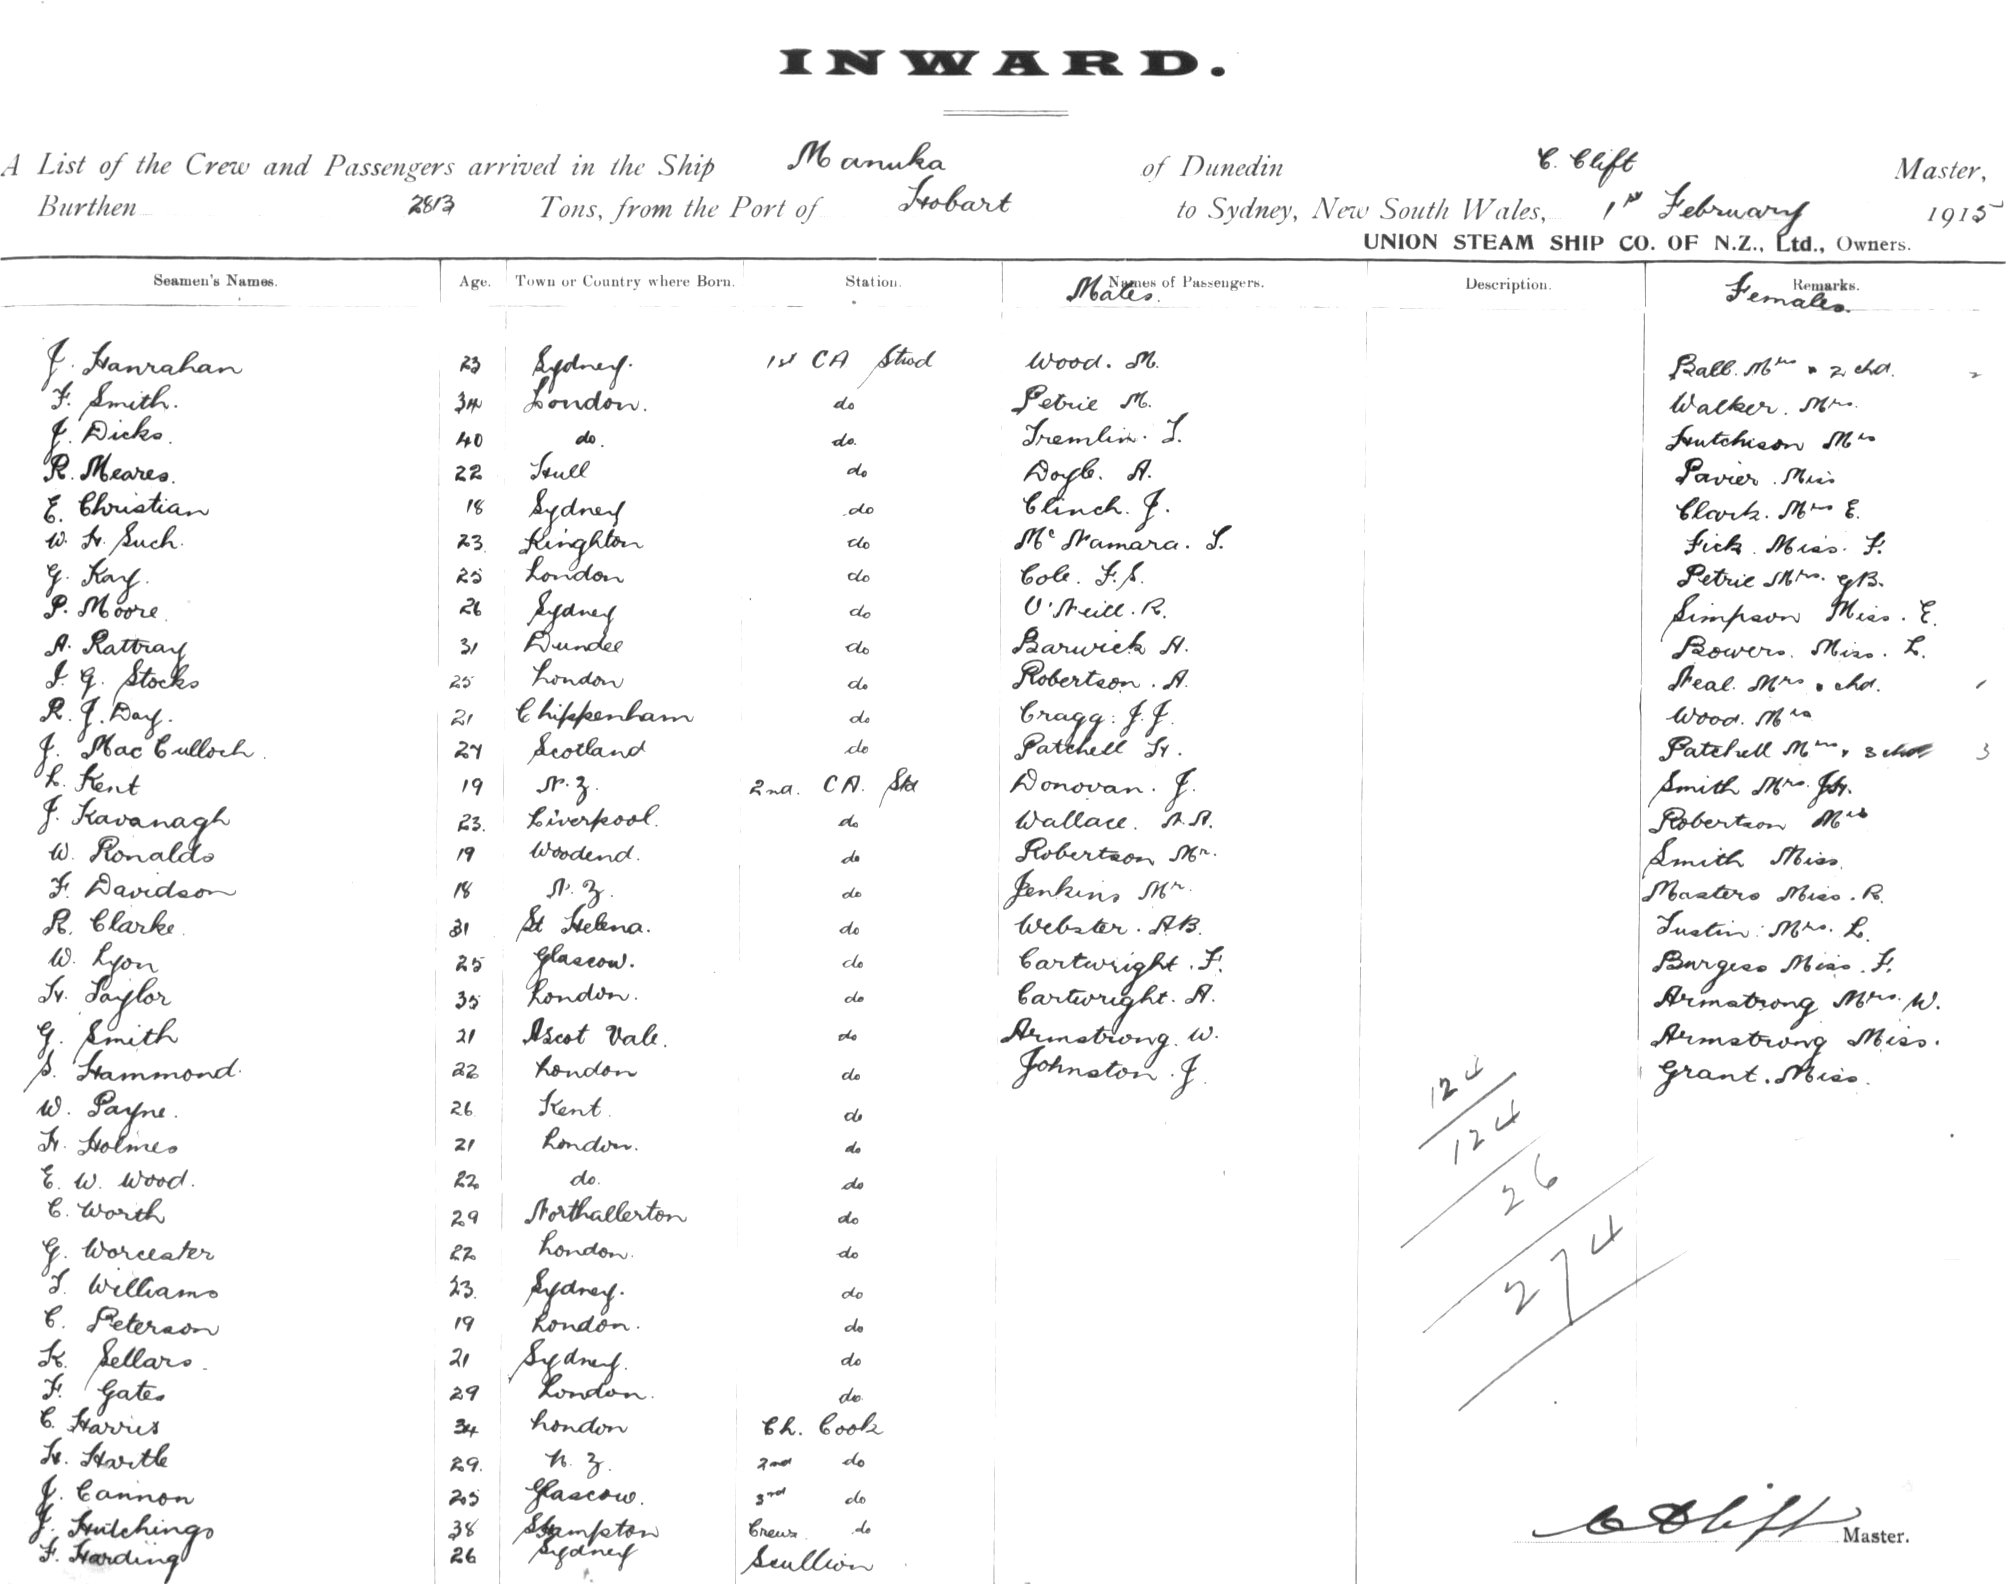 INWARD.
A List of the Crew and Passengers arrived in the Ship Manuka of Dunedin C. Clift Master,
Burthen 2813 Tons, from the Port of Hobart to Sydney, New South Wales, 1st February 1915
UNION STEAM SHIP CO. OF N.Z., Ltd., Owners.
Seamen's Names. Age. Town or Country where Born. Station. Names of Passengers. Description. Remarks.
Males. Females.
J. Hanrahan 23 Sydney. 1st CA Stwd Wood. M. Ball. Mrs & 2 chd. 2
F. Smith. 34 London. do Petrie M. Walker. Mrs.
J. Dicks. 40 do. do. Tremlin. T. Hutchison Mrs
R. Meares. 22 Hull do Doyle. A. Pavier. Miss
E. Christian 18 Sydney do Clinch. J. Clark. Mrs E.
W. H. Such. 23 Kinghton do McNamara. T. Fick. Miss. F.
G. Kay. 25 London do Cole. F.S. Petrie Mrs. GB.
P. Moore. 26 Sydney do O'Neill. R. Simpson Miss. E.
A. Rattray 31 Dundee do Barwick H. Bowers. Miss. L.
I. G. Stocks 25 London do Robertson. A. Neal. Mrs & chd. 1
R. J. Day. 21 Chippenham do Cragg. J.J. Wood. Mrs
J. MacCulloch. 27 Scotland do Patchell H. Patchell Mrs & 3 chd 3
L. Kent 19 N.Z. 2nd. CA. Std Donovan. J. Smith Mrs. JH.
J. Kavanagh 23. Liverpool. do Wallace. A.A. Robertson Mrs
W. Ronalds 19 Woodend. do Robertson Mr. Smith Miss.
F. Davidson 18 N.Z. do Jenkins Mr. Masters Miss. R.
R. Clarke. 31 St Helena. do Webster. AB. Tustin. Mrs. L.
W. Lyon 25 Glascow. do Cartwright. F. Burgess Miss. F.
H. Taylor 35 London. do Cartwright. A. Armstrong Mrs. W.
G. Smith 21 Ascot Vale. do Armstrong. W. Armstrong Miss.
S. Hammond. 22 London do Johnston. J. Grant. Miss.
W. Payne. 26 Kent. do
H. Holmes 21 London. do
E. W. Wood. 22 do. do
C. Worth 29 Northallerton do
G. Worcester 22 London. do
T. Williams 23. Sydney. do
C. Peterson 19 London. do
K. Sellars. 21 Sydney. do
F. Gates 29 London. do
C. Harris 34 London Ch. Cook
H. Hartle 29. N.Z. 2nd do
J. Cannon 25 Glascow. 3rd do
J. Hutchings 38 SHampton Crews. do
F. Harding 26 Sydney Scullion
124
124
26
274
C Clift Master.